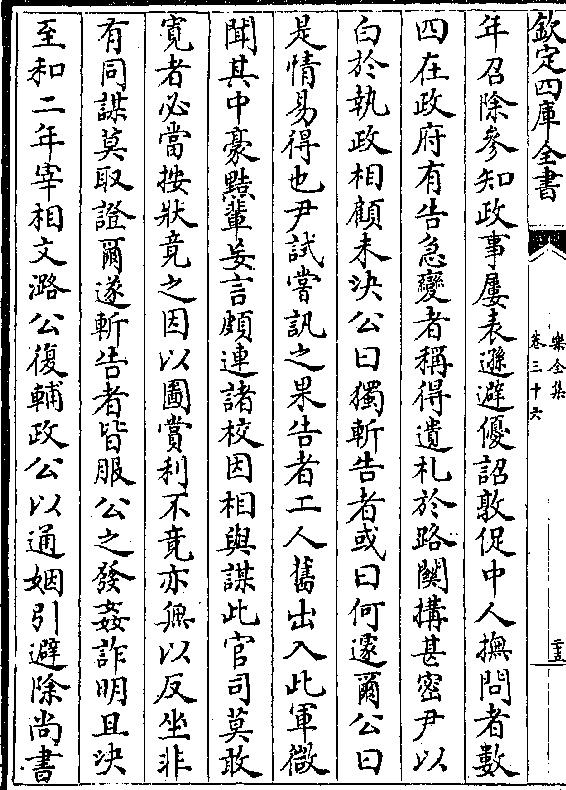 欽定四庫全書
樂全集
卷三十六
二十五
年召除參知政事屢表遜避優詔敦促中人撫問者數
四在政府有告急變者稱得遺札於路關搆甚密尹以
白於執政相顧未決公曰獨斬告者或曰何遽爾公曰
是情易得也尹試嘗訊之果告者工人舊出入此軍微
聞其中豪黠輩妄言頗連諸校因相與謀此官司莫敢
寛者必當按狀竟之因以圖賞利不竟亦無以反坐非
有同謀莫取證爾遂斬告者皆服公之發姦詐明且決
至和二年宰相文潞公復輔政公以通姻引避除尚書